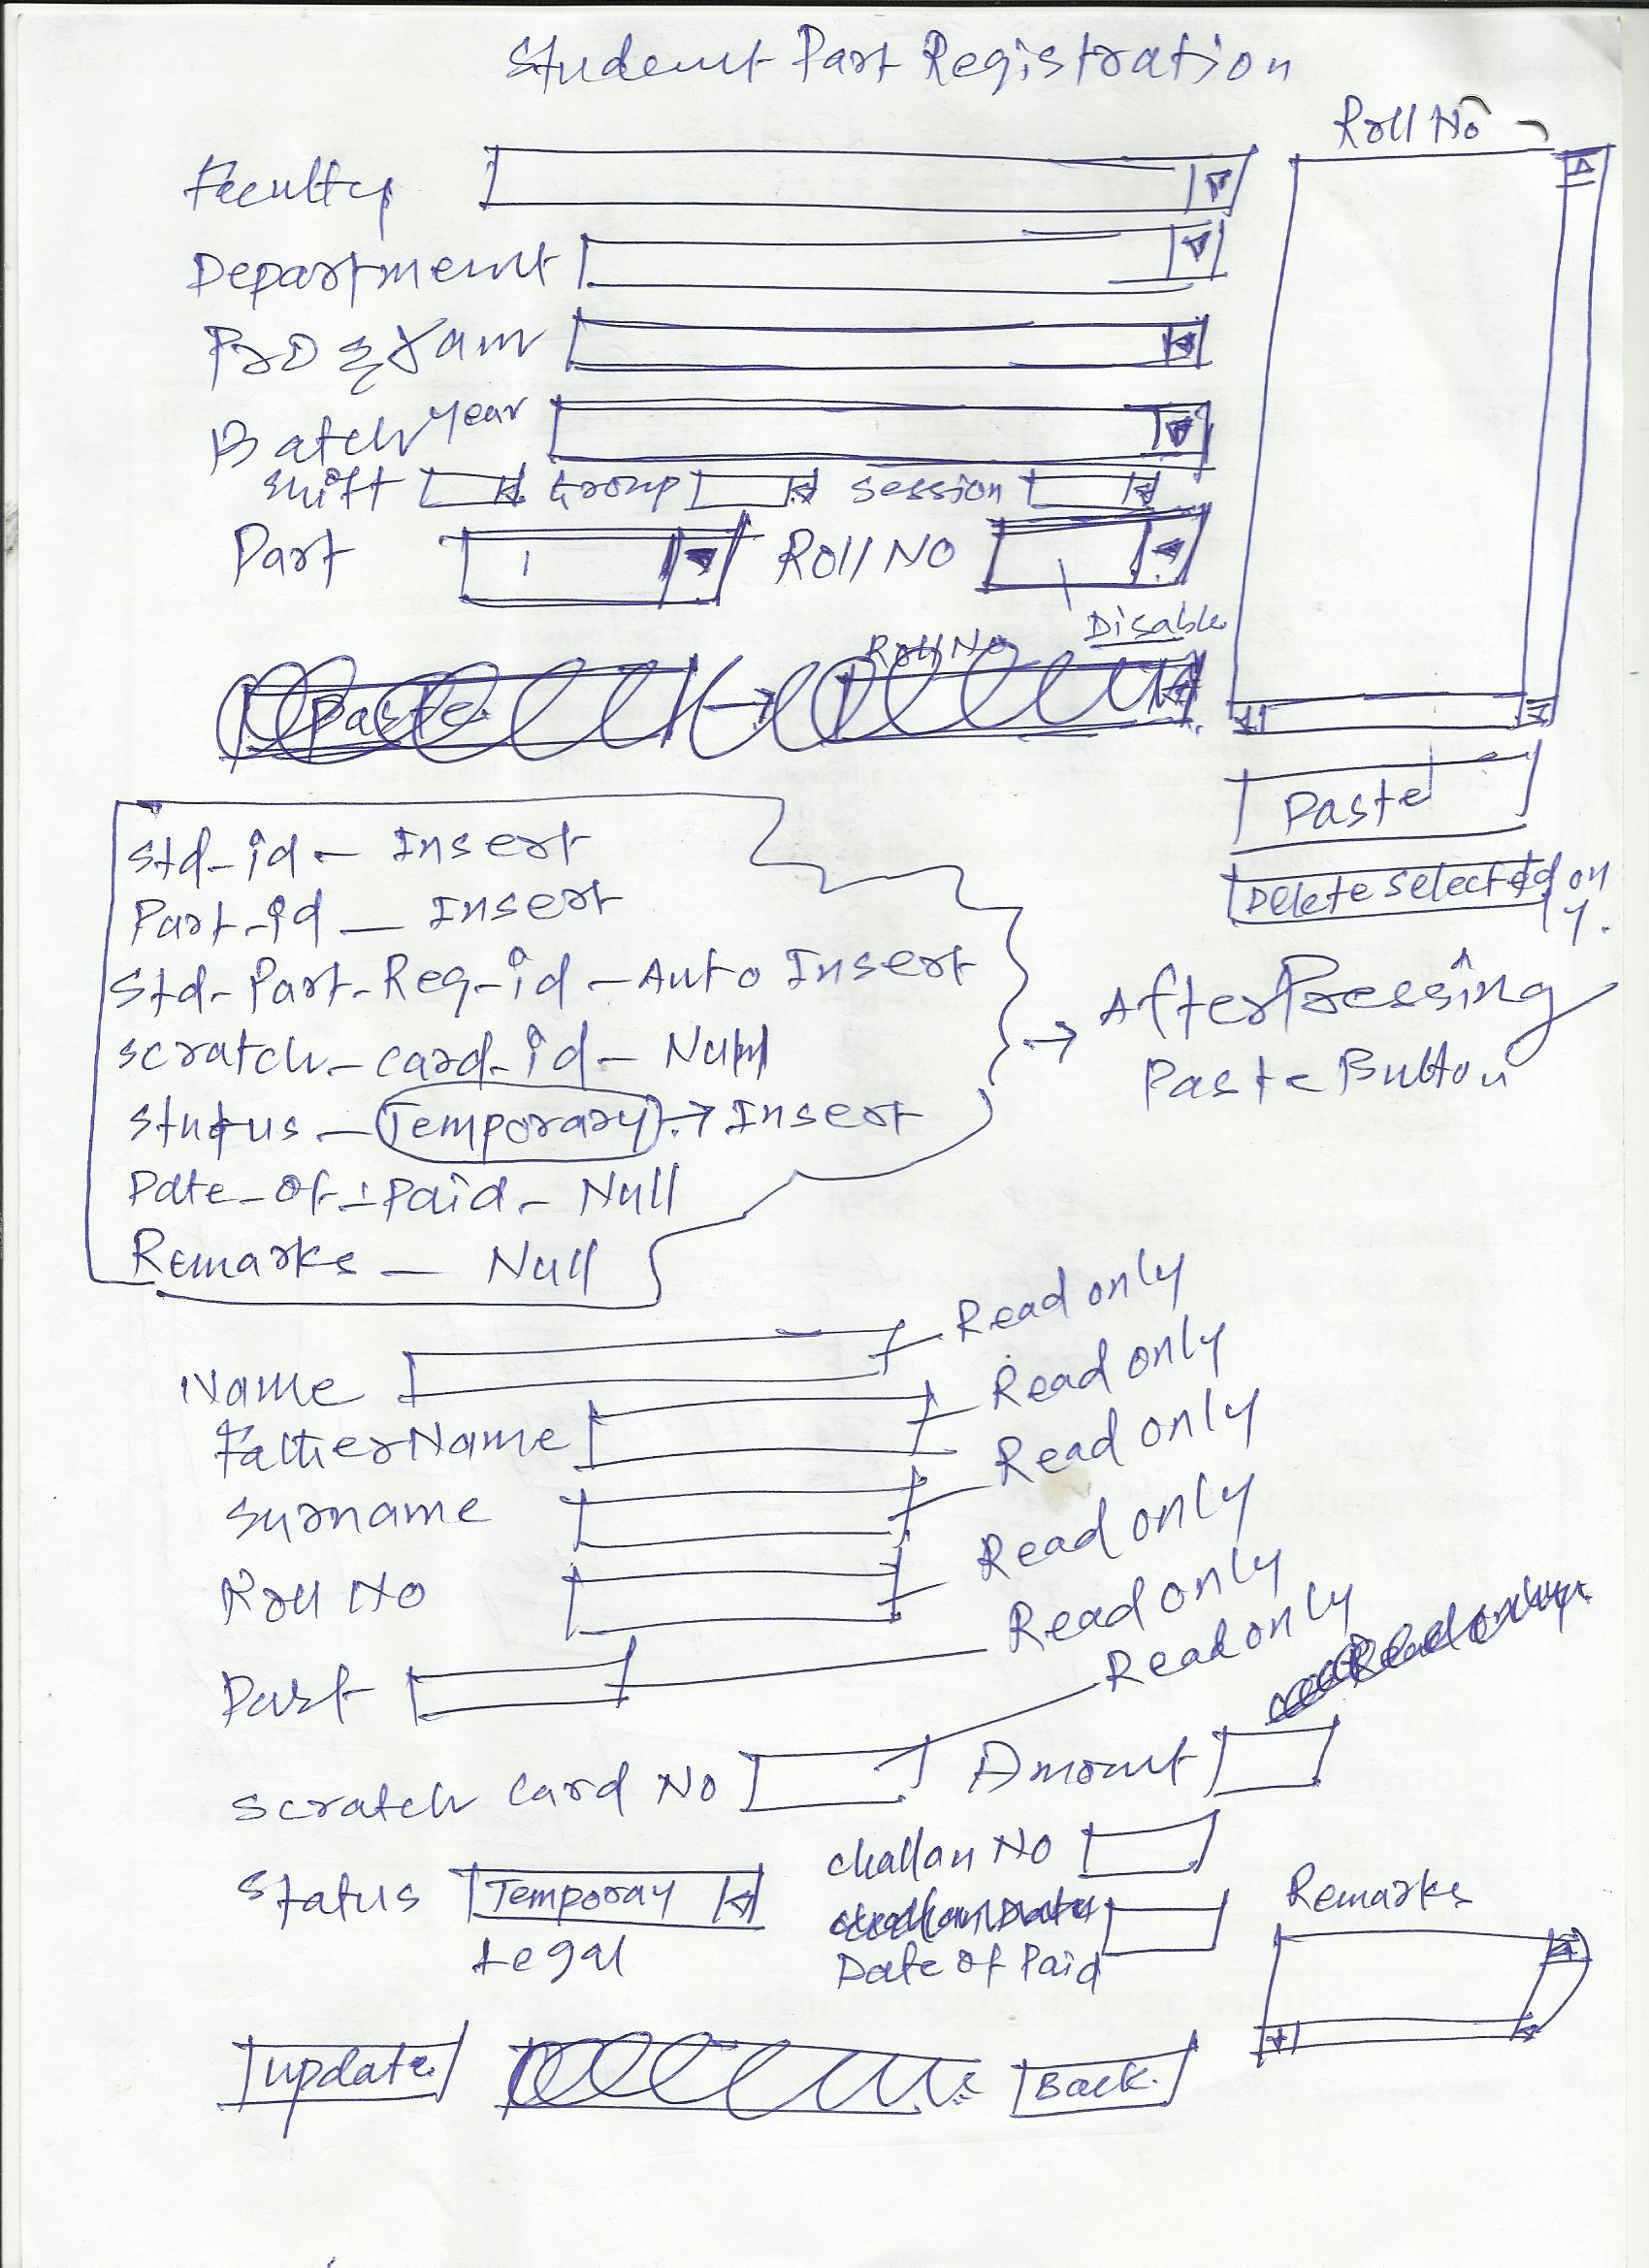 Student Part Registration
Roll No
Faculty
Department
Program
Batch year
Shift Group Session
Part 1 Roll No
Disable
Roll No
Paste
Paste
Delete selected only.
Std-id - Insert
Part-id - Insert
Std-Part-Reg-id - Auto Insert
Scratch-card-id - Null
Status - Temporary → Insert
Date-of-paid - Null
Remarks - Null
→ After Pressing
Paste Button
Name Read only
Father Name Read only
Surname Read only
Roll No Read only
Part Read only
Read only
Read only
Scratch Card No Amount
Challan No
Status Temporay
Legal
Challan Date
Date of Paid
Remarks
update Back